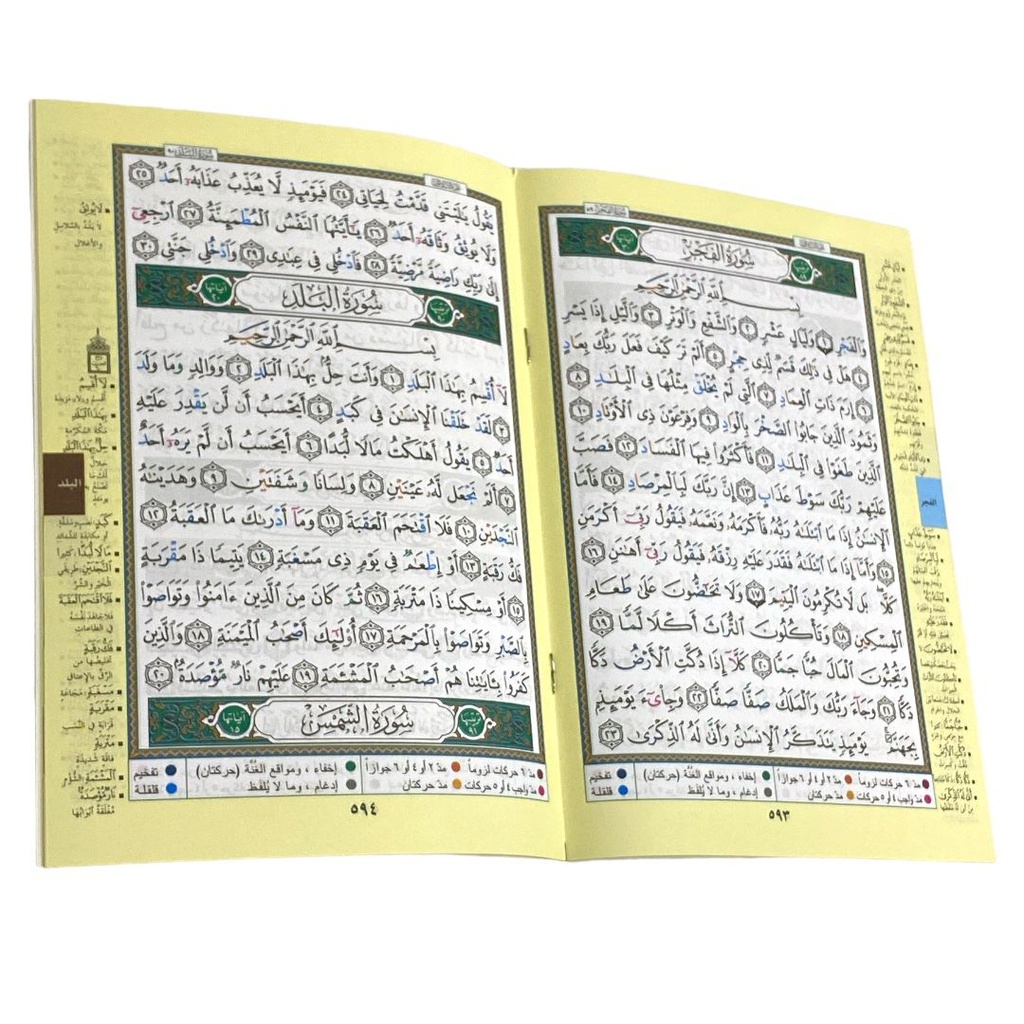 سُورَةُ الفَجْرِ
بِسْمِ ٱللَّهِ ٱلرَّحْمَٰنِ ٱلرَّحِيمِ
وَٱلْفَجْرِ ١ وَلَيَالٍ عَشْرٍ ٢ وَٱلشَّفْعِ وَٱلْوَتْرِ ٣ وَٱلَّيْلِ إِذَا يَسْرِ
٤ هَلْ فِى ذَٰلِكَ قَسَمٌ لِّذِى حِجْرٍ ٥ أَلَمْ تَرَ كَيْفَ فَعَلَ رَبُّكَ بِعَادٍ
٦ إِرَمَ ذَاتِ ٱلْعِمَادِ ٧ ٱلَّتِى لَمْ يُخْلَقْ مِثْلُهَا فِى ٱلْبِلَٰدِ ٨
وَثَمُودَ ٱلَّذِينَ جَابُوا۟ ٱلصَّخْرَ بِٱلْوَادِ ٩ وَفِرْعَوْنَ ذِى ٱلْأَوْتَادِ ١٠
ٱلَّذِينَ طَغَوْا۟ فِى ٱلْبِلَٰدِ ١١ فَأَكْثَرُوا۟ فِيهَا ٱلْفَسَادَ ١٢ فَصَبَّ
عَلَيْهِمْ رَبُّكَ سَوْطَ عَذَابٍ ١٣ إِنَّ رَبَّكَ لَبِٱلْمِرْصَادِ ١٤ فَأَمَّا
ٱلْإِنسَٰنُ إِذَا مَا ٱبْتَلَىٰهُ رَبُّهُۥ فَأَكْرَمَهُۥ وَنَعَّمَهُۥ فَيَقُولُ رَبِّىٓ أَكْرَمَنِ
١٥ وَأَمَّآ إِذَا مَا ٱبْتَلَىٰهُ فَقَدَرَ عَلَيْهِ رِزْقَهُۥ فَيَقُولُ رَبِّىٓ أَهَٰنَنِ ١٦
كَلَّا ۖ بَل لَّا تُكْرِمُونَ ٱلْيَتِيمَ ١٧ وَلَا تَحَٰٓضُّونَ عَلَىٰ طَعَامِ
ٱلْمِسْكِينِ ١٨ وَتَأْكُلُونَ ٱلتُّرَاثَ أَكْلًا لَّمًّا ١٩
وَتُحِبُّونَ ٱلْمَالَ حُبًّا جَمًّا ٢٠ كَلَّآ إِذَا دُكَّتِ ٱلْأَرْضُ دَكًّا
دَكًّا ٢١ وَجَآءَ رَبُّكَ وَٱلْمَلَكُ صَفًّا صَفًّا ٢٢ وَجِا۟ىٓءَ يَوْمَئِذٍۭ
بِجَهَنَّمَ ۚ يَوْمَئِذٍ يَتَذَكَّرُ ٱلْإِنسَٰنُ وَأَنَّىٰ لَهُ ٱلذِّكْرَىٰ ٢٣
مدّ ٦ حركات لزوماً مدّ ٢ أو ٤ أو ٦ جوازاً إخفاء ، ومواقع الغُنَّة (حركتان) تفخيم
مدّ واجب ٤ أو ٥ حركات مدّ حركتان إدغام ، وما لا يُلفَظ قلقلة
٥٩٣
الفجر
يَقُولُ يَٰلَيْتَنِى قَدَّمْتُ لِحَيَاتِى ٢٤ فَيَوْمَئِذٍ لَّا يُعَذِّبُ عَذَابَهُۥٓ أَحَدٌ ٢٥
وَلَا يُوثِقُ وَثَاقَهُۥٓ أَحَدٌ ٢٦ يَٰٓأَيَّتُهَا ٱلنَّفْسُ ٱلْمُطْمَئِنَّةُ ٢٧ ٱرْجِعِىٓ
إِلَىٰ رَبِّكِ رَاضِيَةً مَّرْضِيَّةً ٢٨ فَٱدْخُلِى فِى عِبَٰدِى ٢٩ وَٱدْخُلِى جَنَّتِى ٣٠
ترتيبها ٩٠ سُورَةُ البَلَدِ آياتها ٢٠
بِسْمِ ٱللَّهِ ٱلرَّحْمَٰنِ ٱلرَّحِيمِ
لَآ أُقْسِمُ بِهَٰذَا ٱلْبَلَدِ ١ وَأَنتَ حِلٌّۢ بِهَٰذَا ٱلْبَلَدِ ٢ وَوَالِدٍ وَمَا وَلَدَ
٣ لَقَدْ خَلَقْنَا ٱلْإِنسَٰنَ فِى كَبَدٍ ٤ أَيَحْسَبُ أَن لَّن يَقْدِرَ عَلَيْهِ
أَحَدٌ ٥ يَقُولُ أَهْلَكْتُ مَالًا لُّبَدًا ٦ أَيَحْسَبُ أَن لَّمْ يَرَهُۥٓ أَحَدٌ
٧ أَلَمْ نَجْعَل لَّهُۥ عَيْنَيْنِ ٨ وَلِسَانًا وَشَفَتَيْنِ ٩ وَهَدَيْنَٰهُ
ٱلنَّجْدَيْنِ ١٠ فَلَا ٱقْتَحَمَ ٱلْعَقَبَةَ ١١ وَمَآ أَدْرَىٰكَ مَا ٱلْعَقَبَةُ ١٢
فَكُّ رَقَبَةٍ ١٣ أَوْ إِطْعَٰمٌ فِى يَوْمٍ ذِى مَسْغَبَةٍ ١٤ يَتِيمًا ذَا مَقْرَبَةٍ
١٥ أَوْ مِسْكِينًا ذَا مَتْرَبَةٍ ١٦ ثُمَّ كَانَ مِنَ ٱلَّذِينَ ءَامَنُوا۟ وَتَوَاصَوْا۟
بِٱلصَّبْرِ وَتَوَاصَوْا۟ بِٱلْمَرْحَمَةِ ١٧ أُو۟لَٰٓئِكَ أَصْحَٰبُ ٱلْمَيْمَنَةِ ١٨ وَٱلَّذِينَ
كَفَرُوا۟ بِـَٔايَٰتِنَا هُمْ أَصْحَٰبُ ٱلْمَشْـَٔمَةِ ١٩ عَلَيْهِمْ نَارٌ مُّؤْصَدَةٌۢ ٢٠
ترتيبها ٩١ سُورَةُ الشَّمْسِ آياتها ١٥
مدّ ٦ حركات لزوماً مدّ ٢ أو ٤ أو ٦ جوازاً إخفاء ، ومواقع الغُنَّة (حركتان) تفخيم
مدّ واجب ٤ أو ٥ حركات مدّ حركتان إدغام ، وما لا يُلفَظ قلقلة
٥٩٤
لا يُوثِقُ
لا أُقْسِمُ
البلد